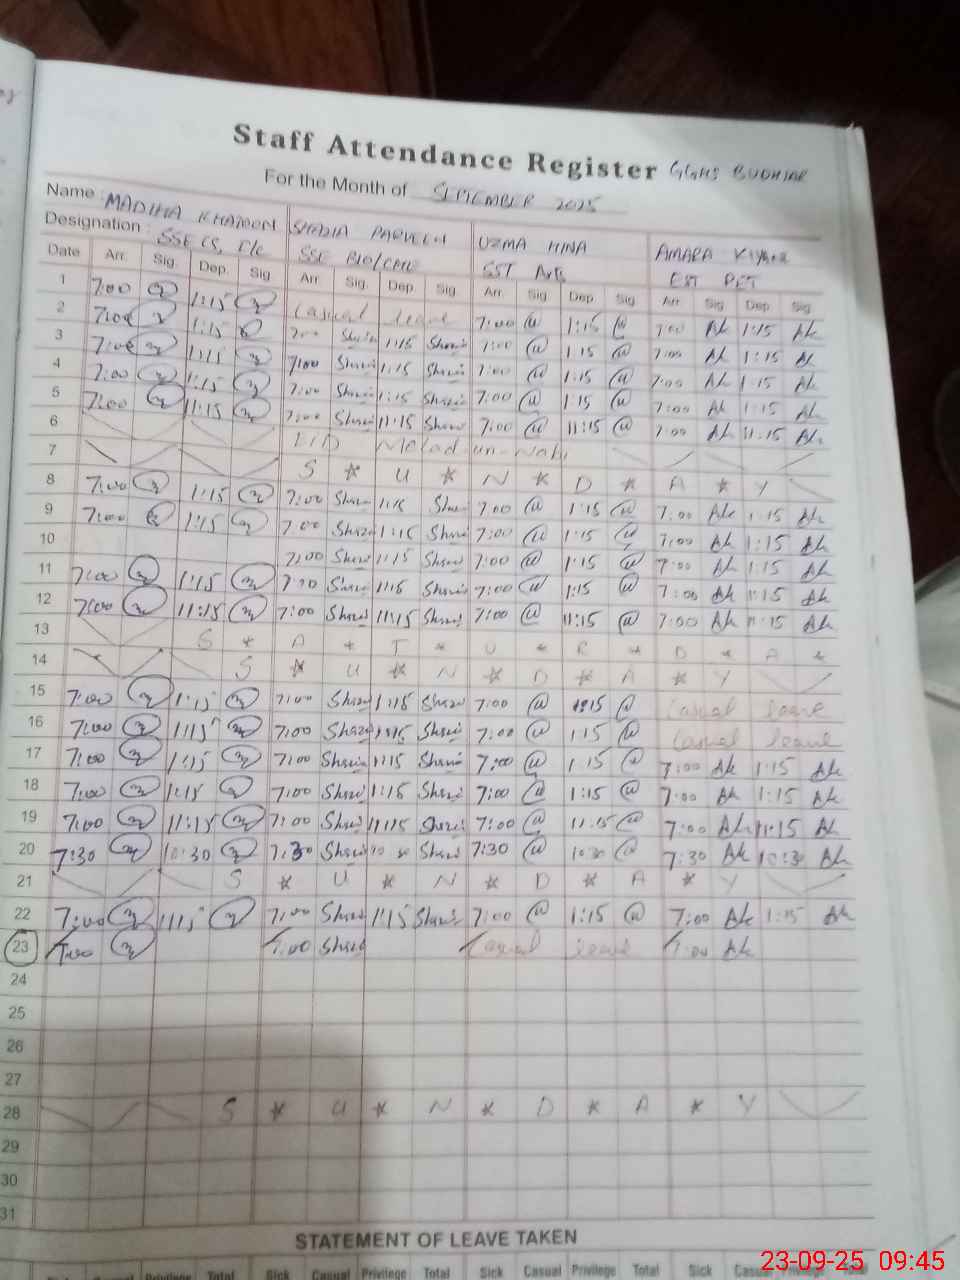 Staff Attendance Register GGHS BUDHIAL
For the Month of SEPTEMBER 2025
Name : MADIHA KHATOON SHAZIA PARVEEN UZMA HINA AMARA
Designation : SSE CS, I/c SSE BIO/CHE SST Arts EST PET
Date Arr. Sig. Dep. Sig Arr Sig. Dep. Sig. Arr. Sig Dep. Sig Arr. Sig Dep Sig
1 7:00 1:15 Casual leave 7:00 1:15 7:00 Ak 1:15 Ak
2 7:00 1:15 7:00 1:15 7:00 1:15 7:00 Ak 1:15 Ak
3 7:00 1:15 7:00 1:15 7:00 1:15 7:00 Ak 1:15 Ak
4 7:00 1:15 7:00 1:15 7:00 1:15 7:00 Ak 1:15 Ak
5 7:00 11:15 7:00 11:15 7:00 11:15 7:00 Ak 11:15 Ak
6 EID Melad un-Nabi
7 S * U * N * D * A * Y
8 7:00 1:15 7:00 1:15 7:00 1:15 7:00 Ak 1:15 Ak
9 7:00 1:15 7:00 1:15 7:00 1:15 7:00 Ak 1:15 Ak
10 7:00 1:15 7:00 1:15 7:00 Ak 1:15 Ak
11 7:00 1:15 7:00 1:15 7:00 1:15 7:00 Ak 1:15 Ak
12 7:00 11:15 7:00 11:15 7:00 11:15 7:00 Ak 11:15 Ak
13 S * A * T * U * R * D * A *
14 S * U * N * D * A * Y
15 7:00 1:15 7:00 1:15 7:00 1:15 Casual leave
16 7:00 1:15 7:00 1:15 7:00 1:15 Casual leave
17 7:00 1:15 7:00 1:15 7:00 1:15 7:00 Ak 1:15 Ak
18 7:00 1:15 7:00 1:15 7:00 1:15 7:00 Ak 1:15 Ak
19 7:00 11:15 7:00 11:15 7:00 11:15 7:00 Ak 11:15 Ak
20 7:30 10:30 7:30 10 30 7:30 10:30 7:30 Ak 10:30 Ak
21 S * U * N * D * A * Y
22 7:00 1:15 7:00 1:15 7:00 1:15 7:00 Ak 1:15 Ak
23 7:00 7:00 Casual leave 7:00 Ak
24
25
26
27
28 S * U * N * D * A * Y
29
30
31
STATEMENT OF LEAVE TAKEN
Sick Casual Privilege Total Sick Casual Privilege Total Sick Casual Privilege Total Sick Casual Privilege Total
23-09-25 09:45